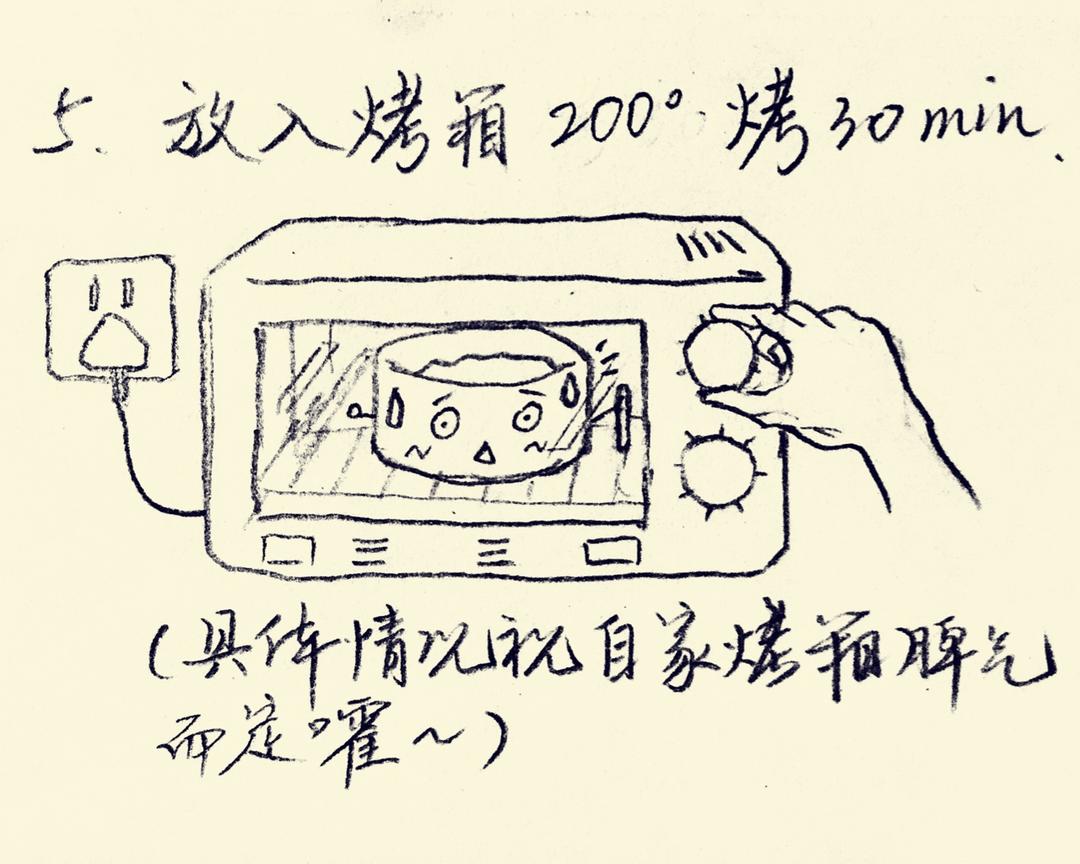 5. 放入烤箱 200° 烤30min.
(具体情况视自家烤箱脾气
而定嚯~)